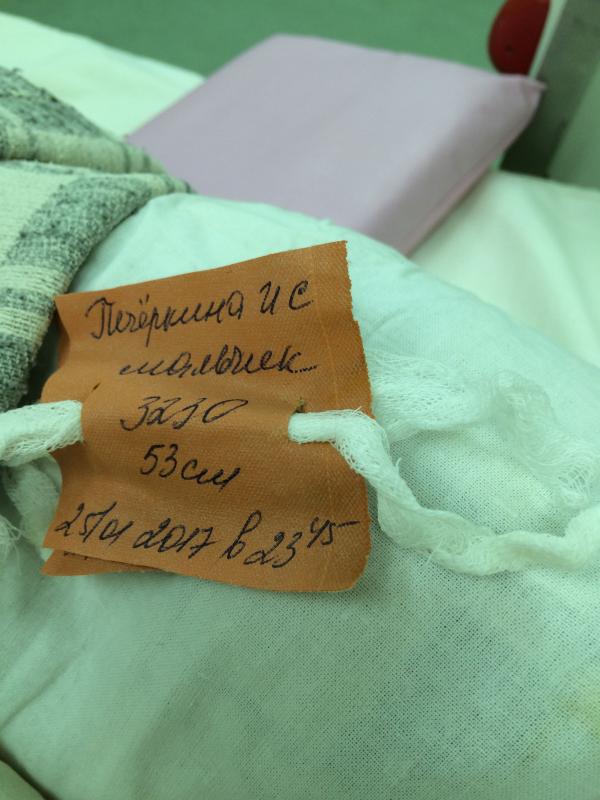 Печёркина И С
мальчик
3230
53 см
25/01 2017 в 23 45